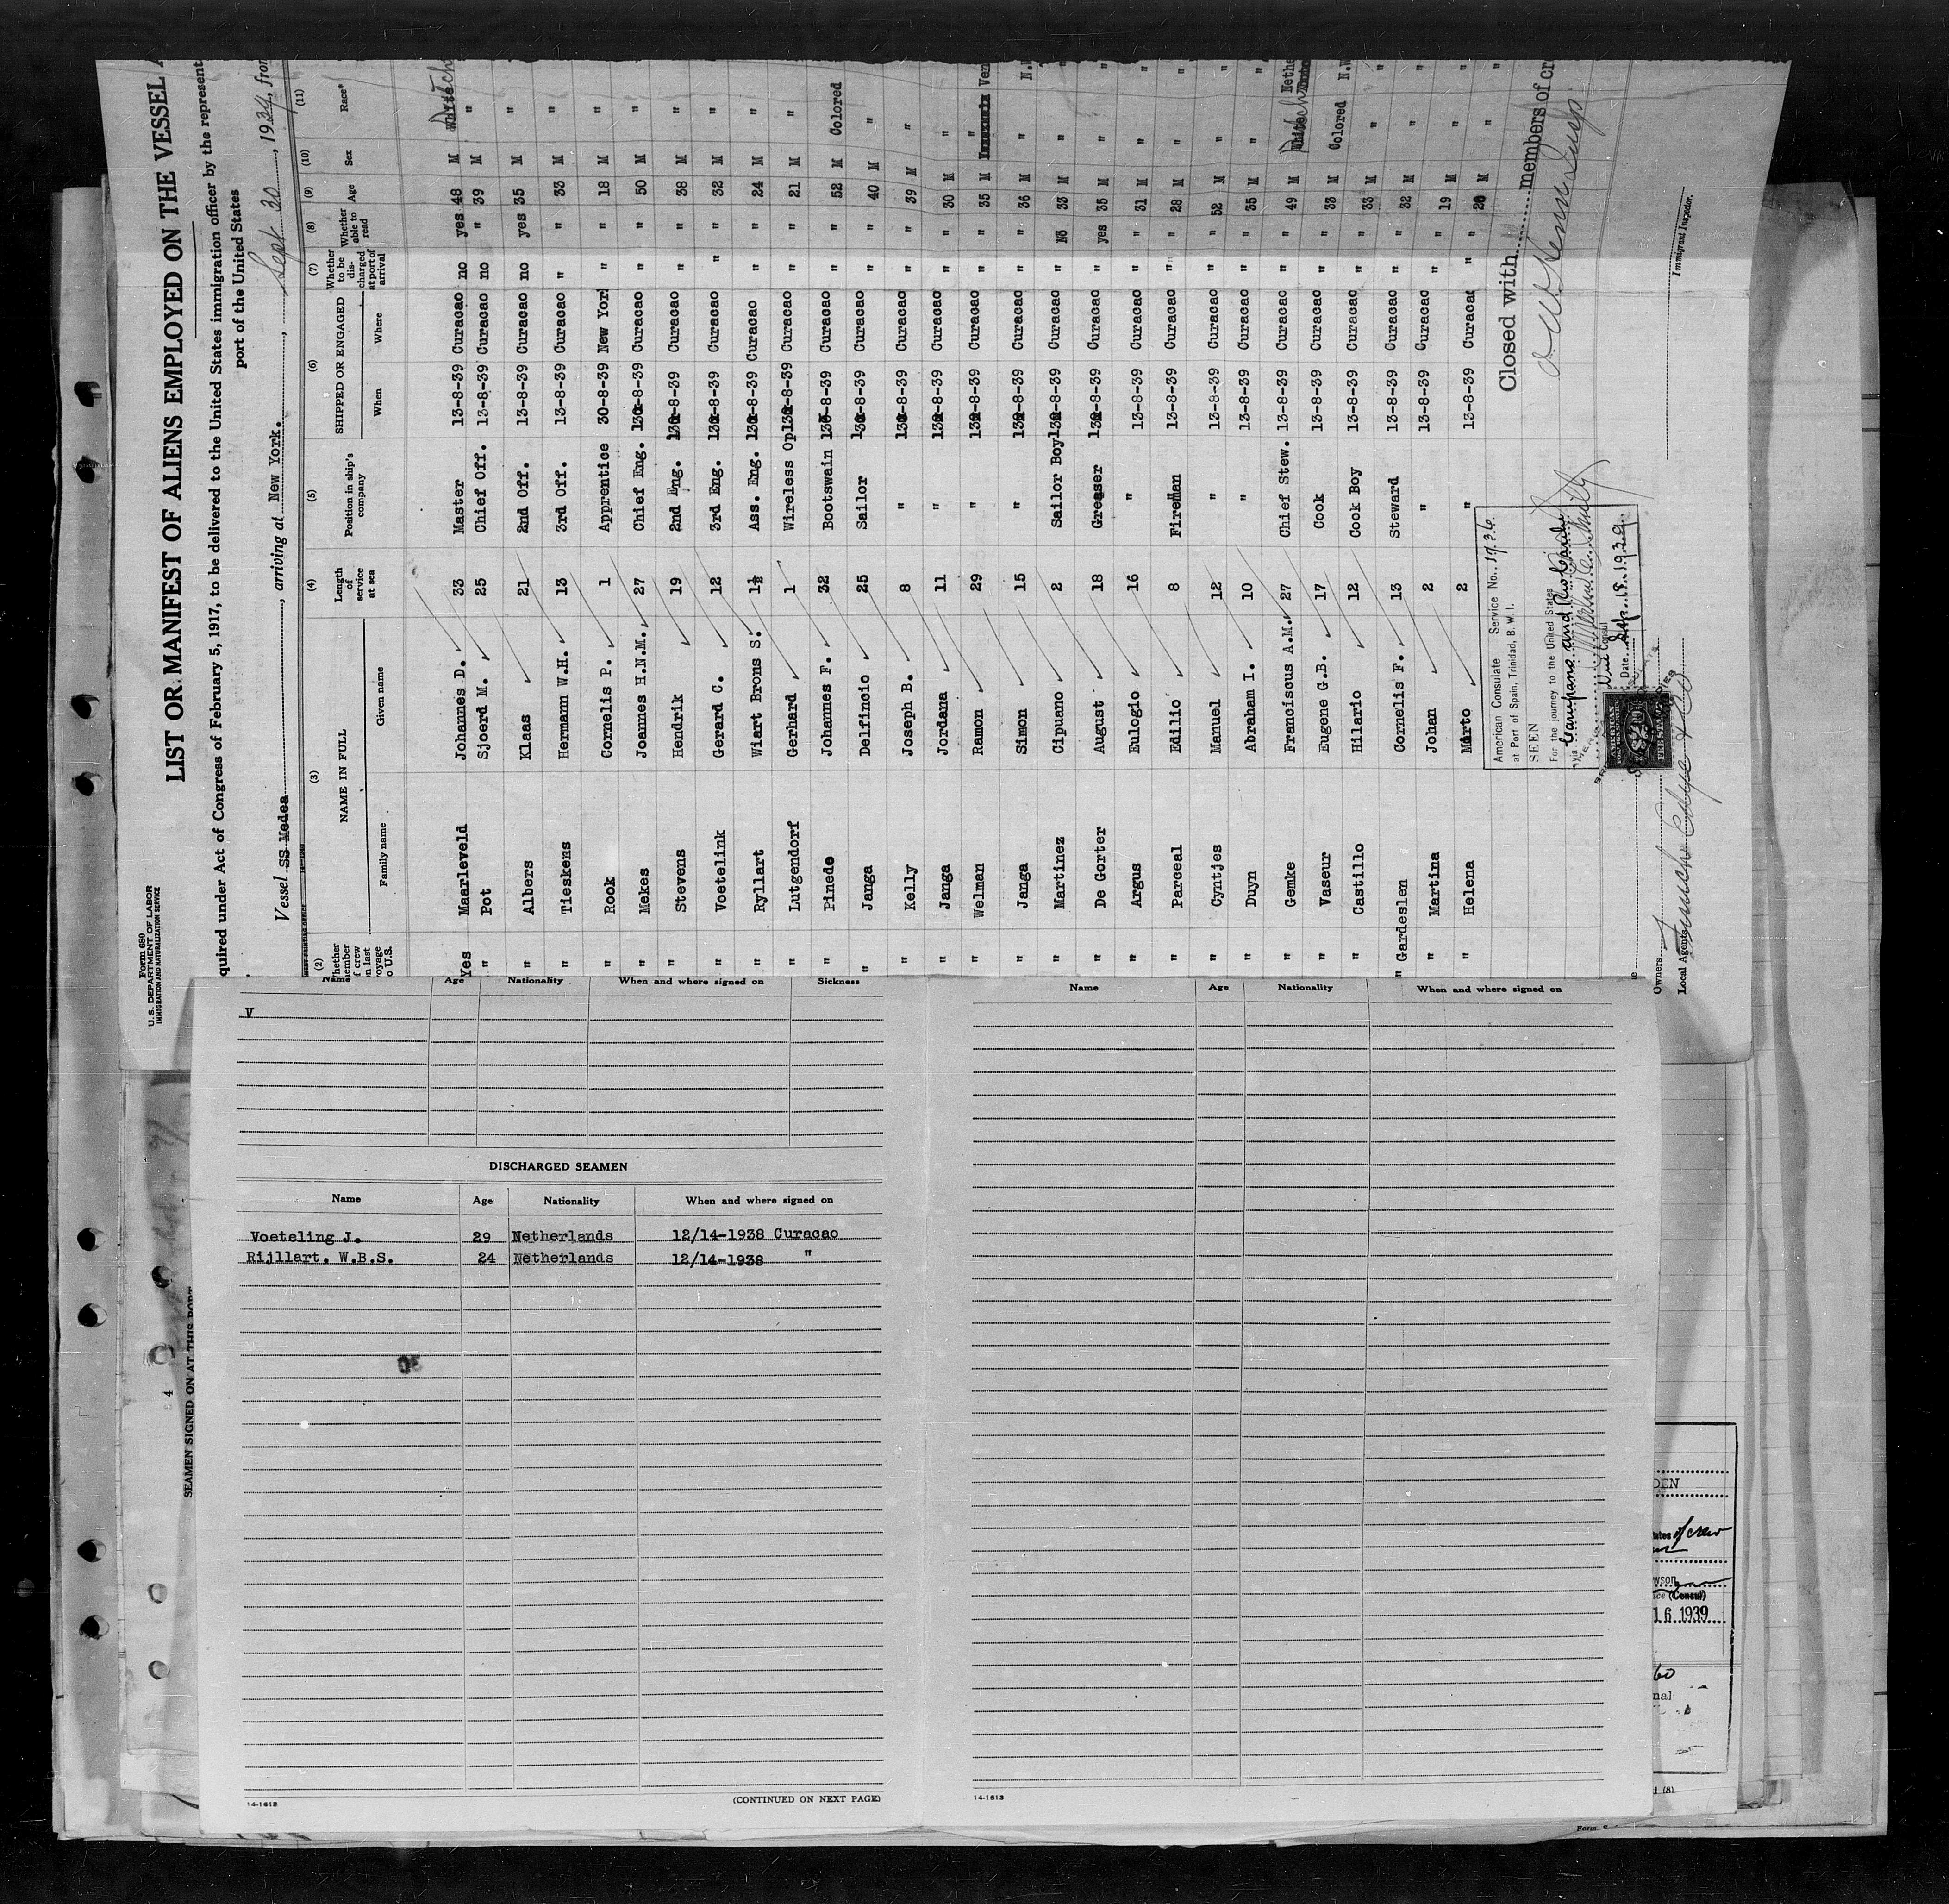 Form 680
U. S. DEPARTMENT OF LABOR
IMMIGRATION AND NATURALIZATION SERVICE
LIST OR MANIFEST OF ALIENS EMPLOYED ON THE VESSEL
quired under Act of Congress of February 5, 1917, to be delivered to the United States immigration officer by the represent
port of the United States
Vessel SS Medea, arriving at New York., Sept 30, 1939, from
(2) (3) (4) (5) (6) (7) (8) (9) (10) (11)
NAME IN FULL
Family name Given name
Length of service at sea
Position in ship's company
SHIPPED OR ENGAGED
When Where
Whether to be discharged at port of arrival
Whether able to read
Age Sex Race*
Yes Maarleveld Johannes D. 33 Master 13-8-39 Curacao no yes 48 M White
" Pot Sjoerd M. 25 Chief Off. 13-8-39 Curacao no " 39 M "
" Albers Klaas 21 2nd Off. 13-8-39 Curacao no yes 35 M "
" Tieskens Hermann W.H. 13 3rd Off. 13-8-39 Curacao " " 33 M "
" Rook Cornelis P. 1 Apprentice 30-8-39 New York " " 18 M "
" Mekes Joannes H.N.M. 27 Chief Eng. 13-8-39 Curacao " " 50 M "
" Stevens Hendrik 19 2nd Eng. 13-8-39 Curacao " " 38 M "
" Voetelink Gerard C. 12 3rd Eng. 13-8-39 Curacao " " 32 M "
" Ryllart Wiart Brons S. 1½ Ass. Eng. 13-8-39 Curacao " " 24 M "
" Lutgendorf Gerhard 1 Wireless Op 13-8-39 Curacao " " 21 M "
" Pinedo Johannes F. 32 Bootswain 13-8-39 Curacao " " 52 M Colored
" Janga Delfincio 25 Sailor 13-8-39 Curacao " " 40 M "
" Kelly Joseph B. 8 " 13-8-39 Curacao " " 39 M "
" Janga Jordana 11 " 13-8-39 Curacao " " 30 M "
" Welman Ramon 29 " 13-8-39 Curacao " " 35 M " Ven
" Janga Simon 15 " 13-8-39 Curacao " " 36 M " N.W
" Martinez Cipuano 2 Sailor Boy 13-8-39 Curacao " No 33 M " "
" De Gorter August 18 Greaser 13-8-39 Curacao " yes 35 M " "
" Argus Eulogio 16 " 13-8-39 Curacao " " 31 M " "
" Parceal Edilio 8 Fireman 13-8-39 Curacao " " 28 M " "
" Cyntjes Manuel 12 " 13-8-39 Curacao " " 52 M " "
" Duyn Abraham I. 10 " 13-8-39 Curacao " " 35 M " "
" Gemke Franciscus A.M. 27 Chief Stew. 13-8-39 Curacao " " 49 M White Nethe
" Vaseur Eugene G.B. 17 Cook 13-8-39 Curacao " " 33 M Colored N.W
" Castillo Hilario 12 Cook Boy 13-8-39 Curacao " " 33 M " "
" Gardeslen Cornelis F. 13 Steward 13-8-39 Curacao " " 32 M " "
" Martina Johan 2 " 13-8-39 Curacao " " 19 M " "
" Helena Marto 2 " 13-8-39 Curacao " " 20 M " "
Closed with members of cr
American Consulate Service No. 1736
at Port of Spain, Trinidad, B. W. I.
SEEN
For the journey to the United States
Date Sep. 18. 1939
Immigrant Inspector.
Owners
Local Agents
Name Age Nationality When and where signed on Sickness
V
DISCHARGED SEAMEN
Name Age Nationality When and where signed on
Voeteling J. 29 Netherlands 12/14-1938 Curacao
Rijllart. W.B.S. 24 Netherlands 12/14-1938 "
14-1613 (CONTINUED ON NEXT PAGE)
Name Age Nationality When and where signed on
14-1613
4
SEAMEN SIGNED ON AT THIS PORT
DEN
of crew
wson
(Consul)
16 1939
60
nal